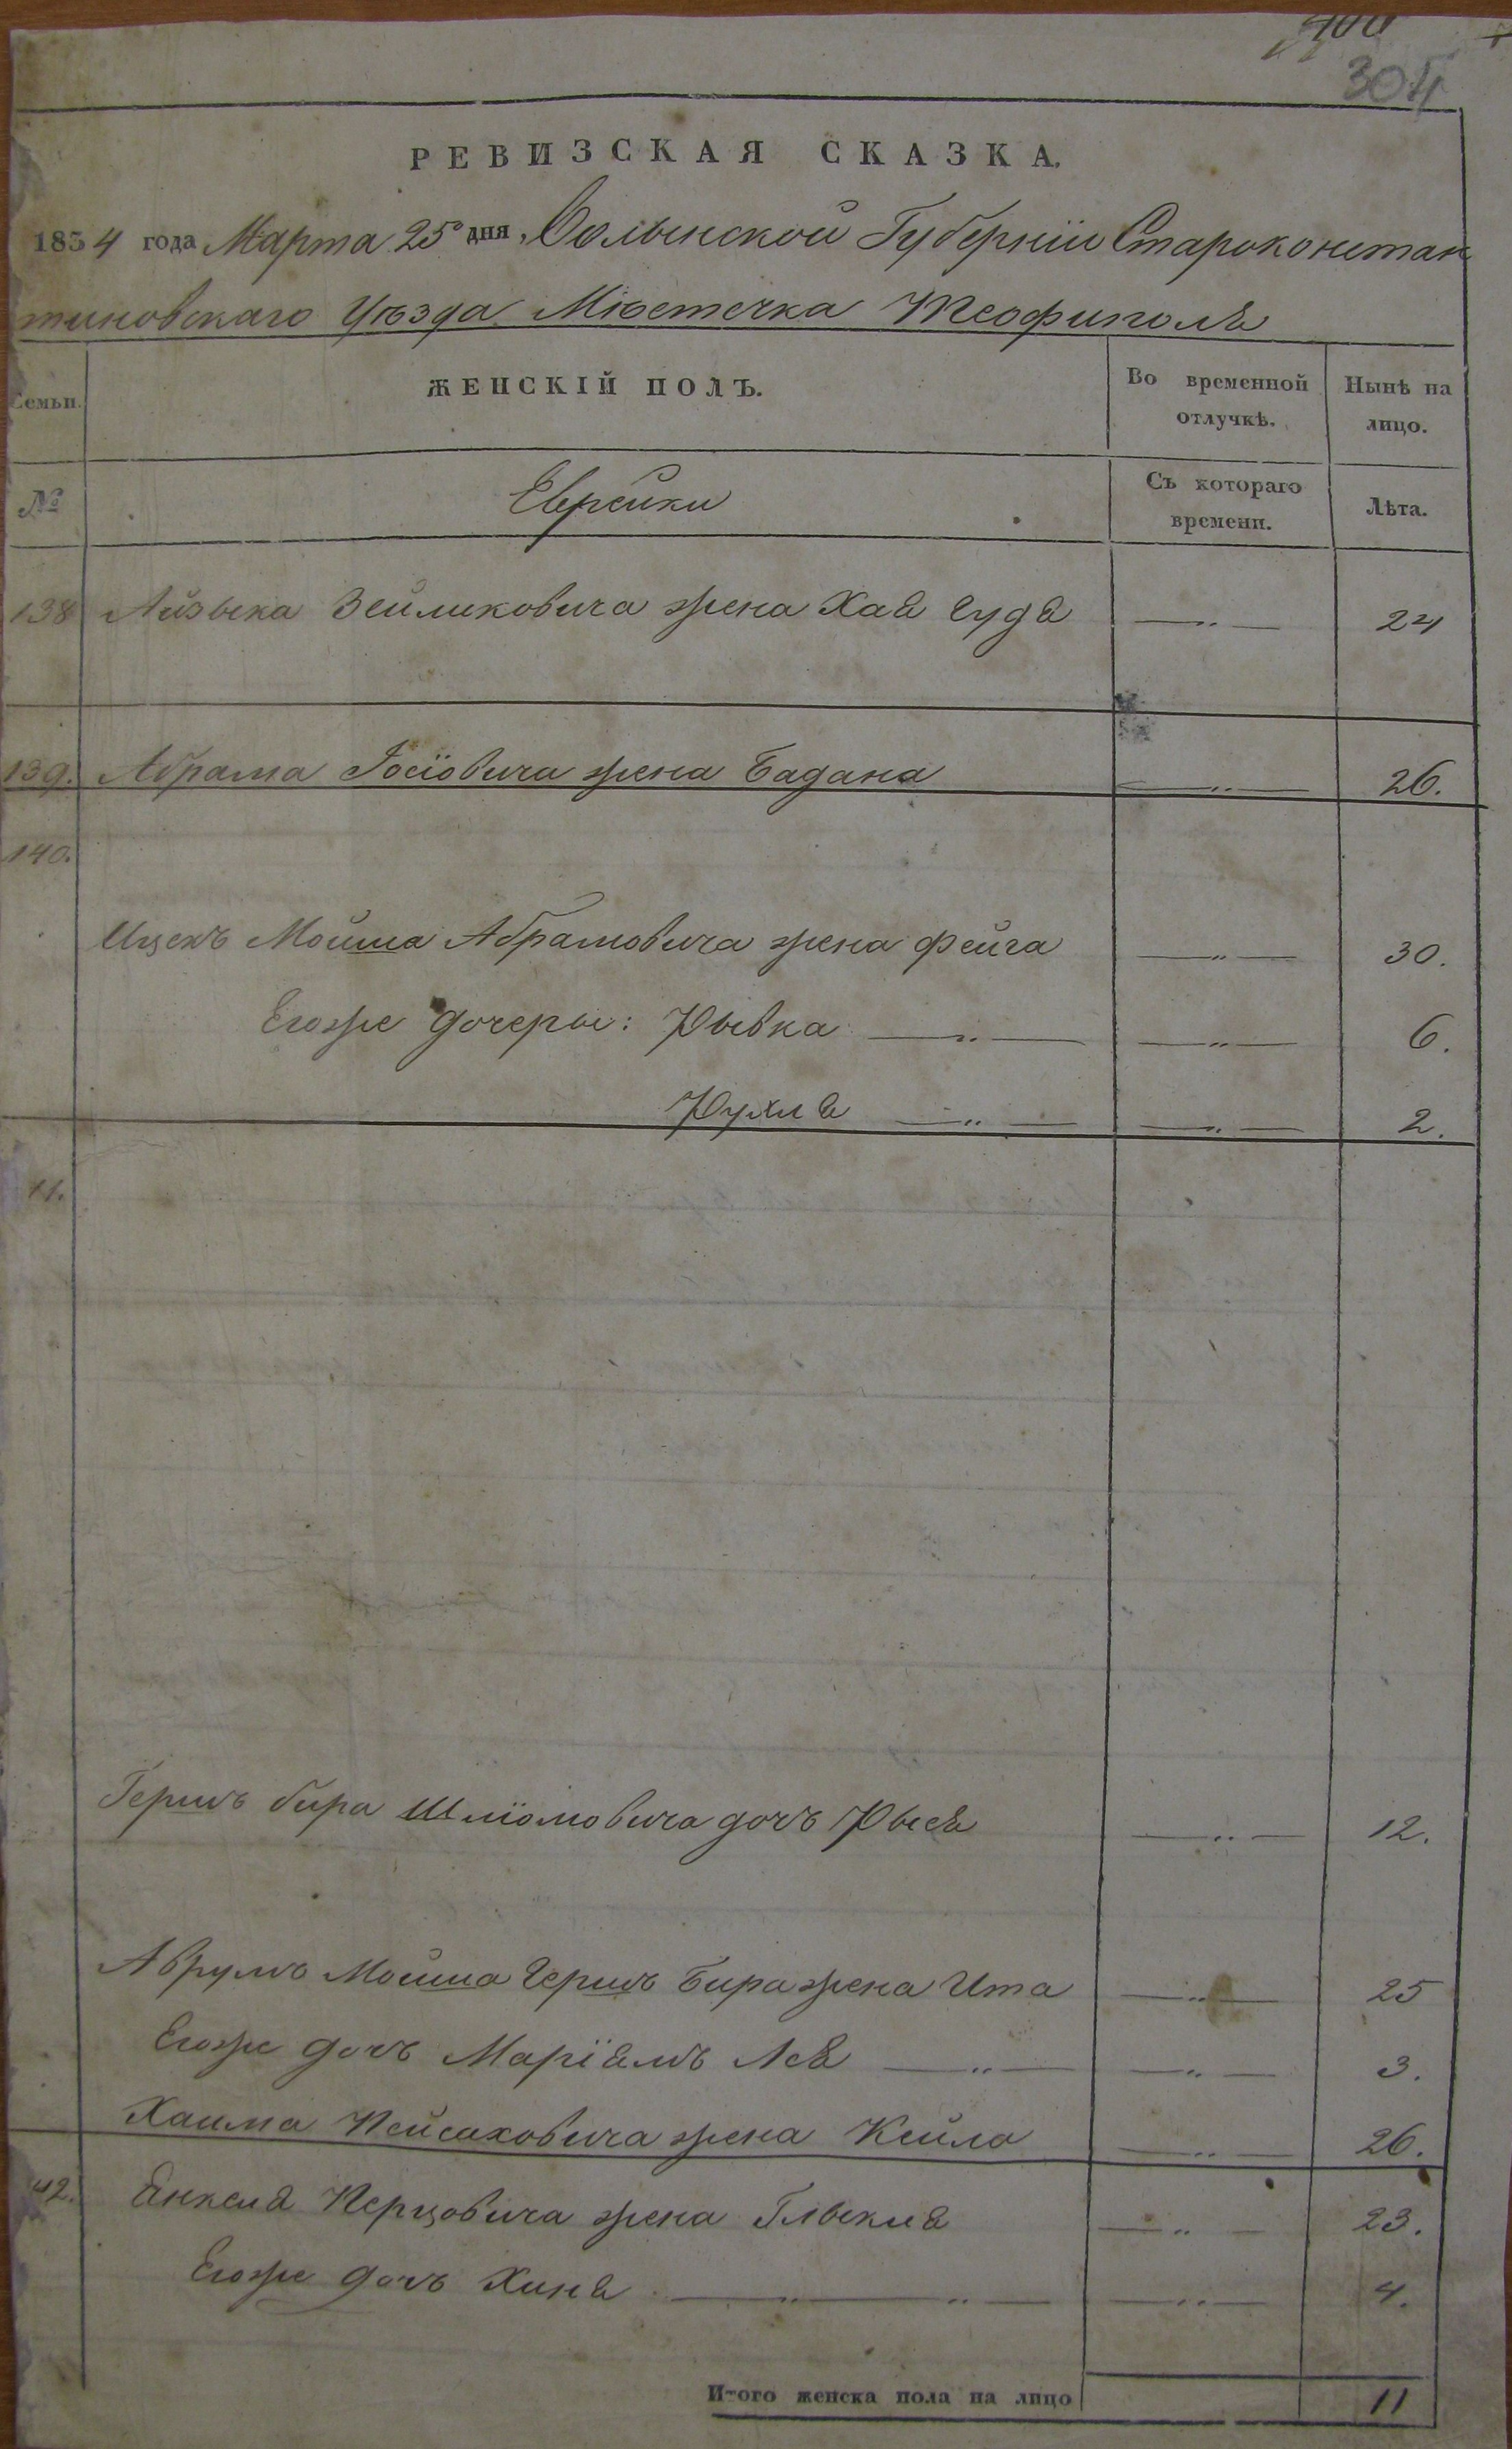 304
РЕВИЗСКАЯ СКАЗКА.
1834 года Марта 25 дня, Волынской Губерніи Староконстан
тиновскаго Уѣзда Мѣстечка Теофиполя
Семьи. ЖЕНСКІЙ ПОЛЪ. Во временной отлучкѣ. Нынѣ на лицо.
№ Еврейки Съ котораго времени. Лѣта.
138 Айзыка Зейликовича жена Хая Судя —„— 24
139. Абрама Іосіовича жена Бадана —„— 26.
140.
Ицекъ Мойша Абрамовича жена Фейга —„— 30.
Егоже дочеры: Рывка —„— —„— 6.
Рухля —„— —„— 2.
Гершъ бира Шліомовича дочъ Рыся —„— 12.
Аврумъ Мойша Гершъ Бира жена Ита —„— 25
Егоже дочъ Маріямъ Лея —„— —„— 3.
Хаима Пейсаховича жена Кейла —„— 26.
42. Янкеля Перцовича жена Глыкля —„— 23.
Егоже дочъ Хиня —„— „— —„— 4.
Итого женска пола на лицо 11